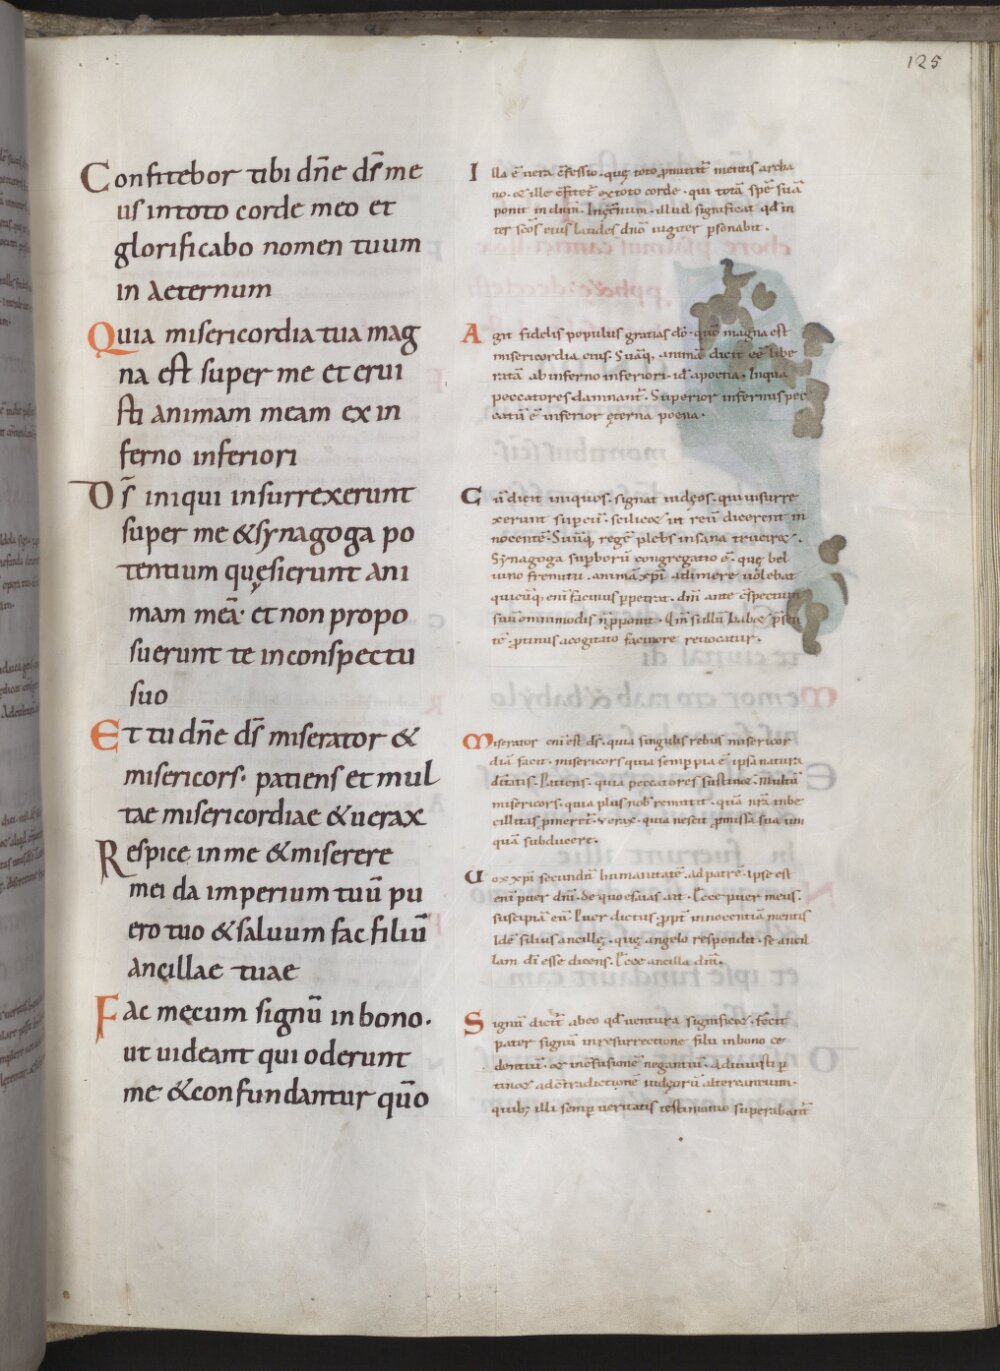 125
Confitebor tibi dn̄e ds̄ me
us in toto corde meo et
glorificabo nomen tuum
in aeternum
Quia misericordia tua mag
na est super me et erui
sti animam meam ex in
ferno inferiori
Ds̄ iniqui insurrexerunt
super me & synagoga po
tentium quęsierunt ani
mam meā· et non propo
suerunt te in conspectu
suo
Et tu dn̄e ds̄ miserator &
misericors· patiens et mul
tae misericordiae & uerax
Respice in me & miserere
mei da imperium tuū pu
ero tuo & saluum fac filiū
ancillae tuae
Fac mecum signū in bono·
ut uideant qui oderunt
me & confundantur qūo
Illa ē uera c̄fessio· quę toto mentis archa
no· & ille ex toto corde· qui totā spē suā
ponit in dn̄m· In illud significat qd̄ in
ter sc̄os eius laudes dn̄o iugiter psonabit·
Agit fidelis populus gratias dō· magna est
misericordia eius· animā dicit libe
ratā ab inferno inferiori· id ē a poena· In qua
peccatores damnant̄· Superior infernus pec
catū ē inferior ęterna poena·
Cū dicit iniquos· signat iudęos· qui insurre
xerunt sup eū· scilic& ut reū dicerent in
nocentē· regē plebs insana
Synagoga supborū congregatio ē· quę bel
uino fremitu· animā xp̄i adimere uolebat
quicūq· eni facinus ppetrat· dn̄m ante c̄spectum
suū ommimodis n̄ pponit·
tē ptinus a cogitato facinore reuocatur·
Miserator eni est ds̄· quia singulis rebus misericor
diā facit· misericors quia semp pia ē ipsa natura
diuitatis· Patiens· quia peccatores sustin&· Multū
misericors· quia plus nob remittit· quā nr̄a inbe
cillitas pmeret̄· Verax· quia nescit pmissa sua um
quā subducere·
Uox xp̄i secundū humanitatē· ad patrē· Ipse est
eni puer dn̄i· de quo esaias ait· Ecce puer meus·
suscipiā eū· Puer dictus· ppt̄ innocentiā mentis
Idē filius ancillę· quę angelo respondit· se ancil
lam dī esse dicens· Ecce ancilla dn̄i·
Signū dicit̄ ab eo qd̄ uentura signific&· Fecit
pater signū in resurrectione filii in bono cre
dentiū· & in c̄fusione negantiū·
tinax ad c̄tradictionē iudęorū
quib; illi semp ueritatis testimonio superabant̄